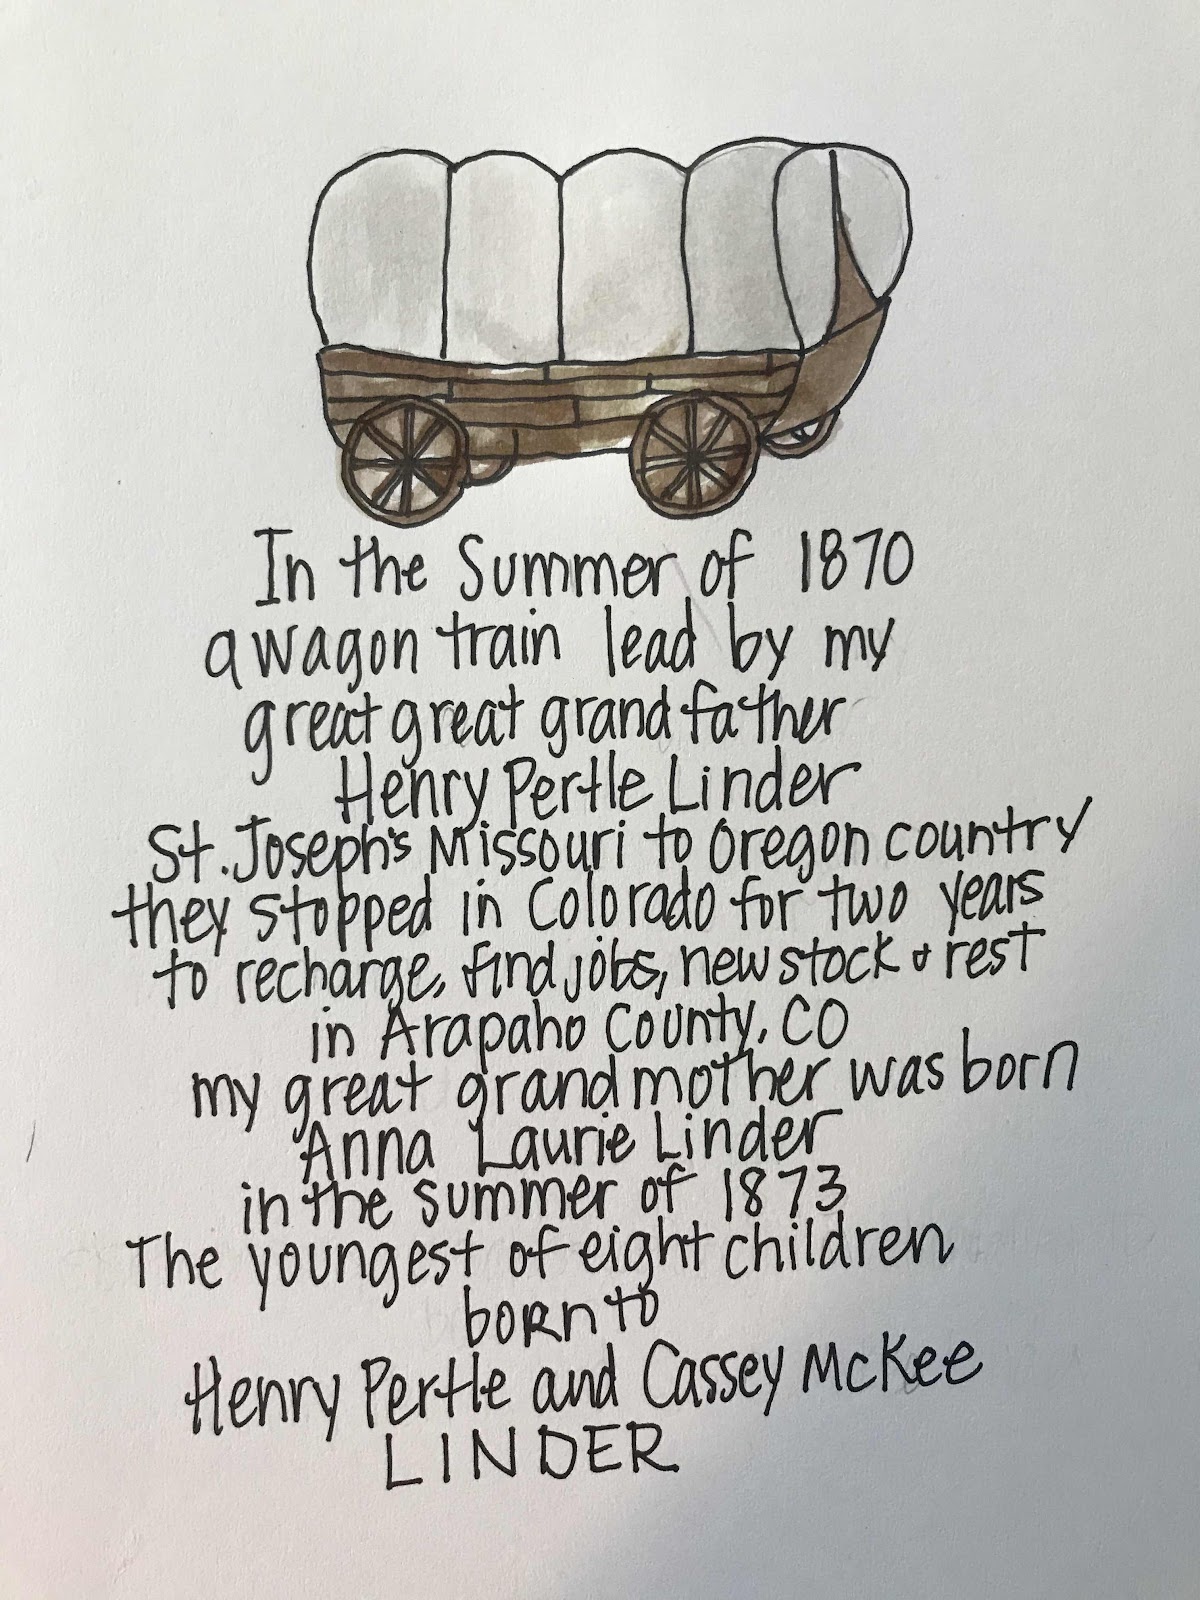 In the Summer of 1870
a wagon train lead by my
great great grandfather
Henry Pertle Linder
St. Joseph's Missouri to Oregon country
they stopped in Colorado for two years
to recharge, find jobs, new stock & rest
in Arapaho County, CO
my great grandmother was born
Anna Laurie Linder
in the summer of 1873
The youngest of eight children
born to
Henry Pertle and Cassey McKee
LINDER